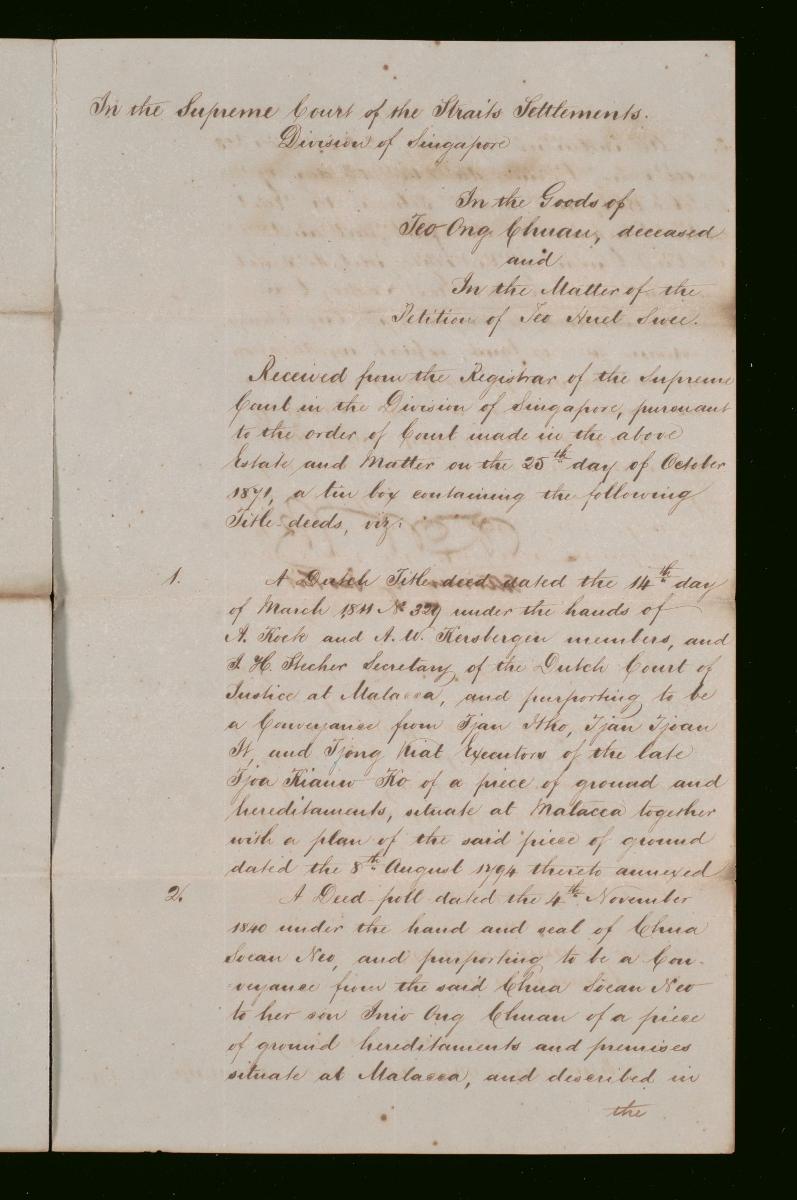 In the Supreme Court of the Straits Settlements.
Division of Singapore
In the Goods of
Teo Ong Chuan, deceased
and
In the Matter of the
Petition of Teo Huet Swee.
Received from the Registrar of the Supreme
Court in the Division of Singapore, pursuant
to the order of Court made in the above
Estate and Matter on the 25th day of October
1871, a tin box containing the following
Title-deeds, viz:
1. A Dutch Title-deed dated the 14th day
of March 1811 No 329 under the hands of
A. Kock and A. W. Kersbergen members, and
J. H. Stecher Secretary of the Dutch Court of
Justice at Malacca, and purporting to be
a Conveyance from Tjan Itho, Tjan Tjoan
It, and Tjong Kiat Executors of the late
Tjoa Kiauw Ko of a piece of ground and
hereditaments, situate at Malacca together
with a plan of the said piece of ground
dated the 8th August 1794 thereto annexed
2. A Deed-poll dated the 4th November
1840 under the hand and seal of Chua
Soean Neo, and purporting to be a Con-
veyance from the said Chua Soean Neo
to her son Inio Ong Chuan of a piece
of ground hereditaments and premises
situate at Malacca, and described in
the